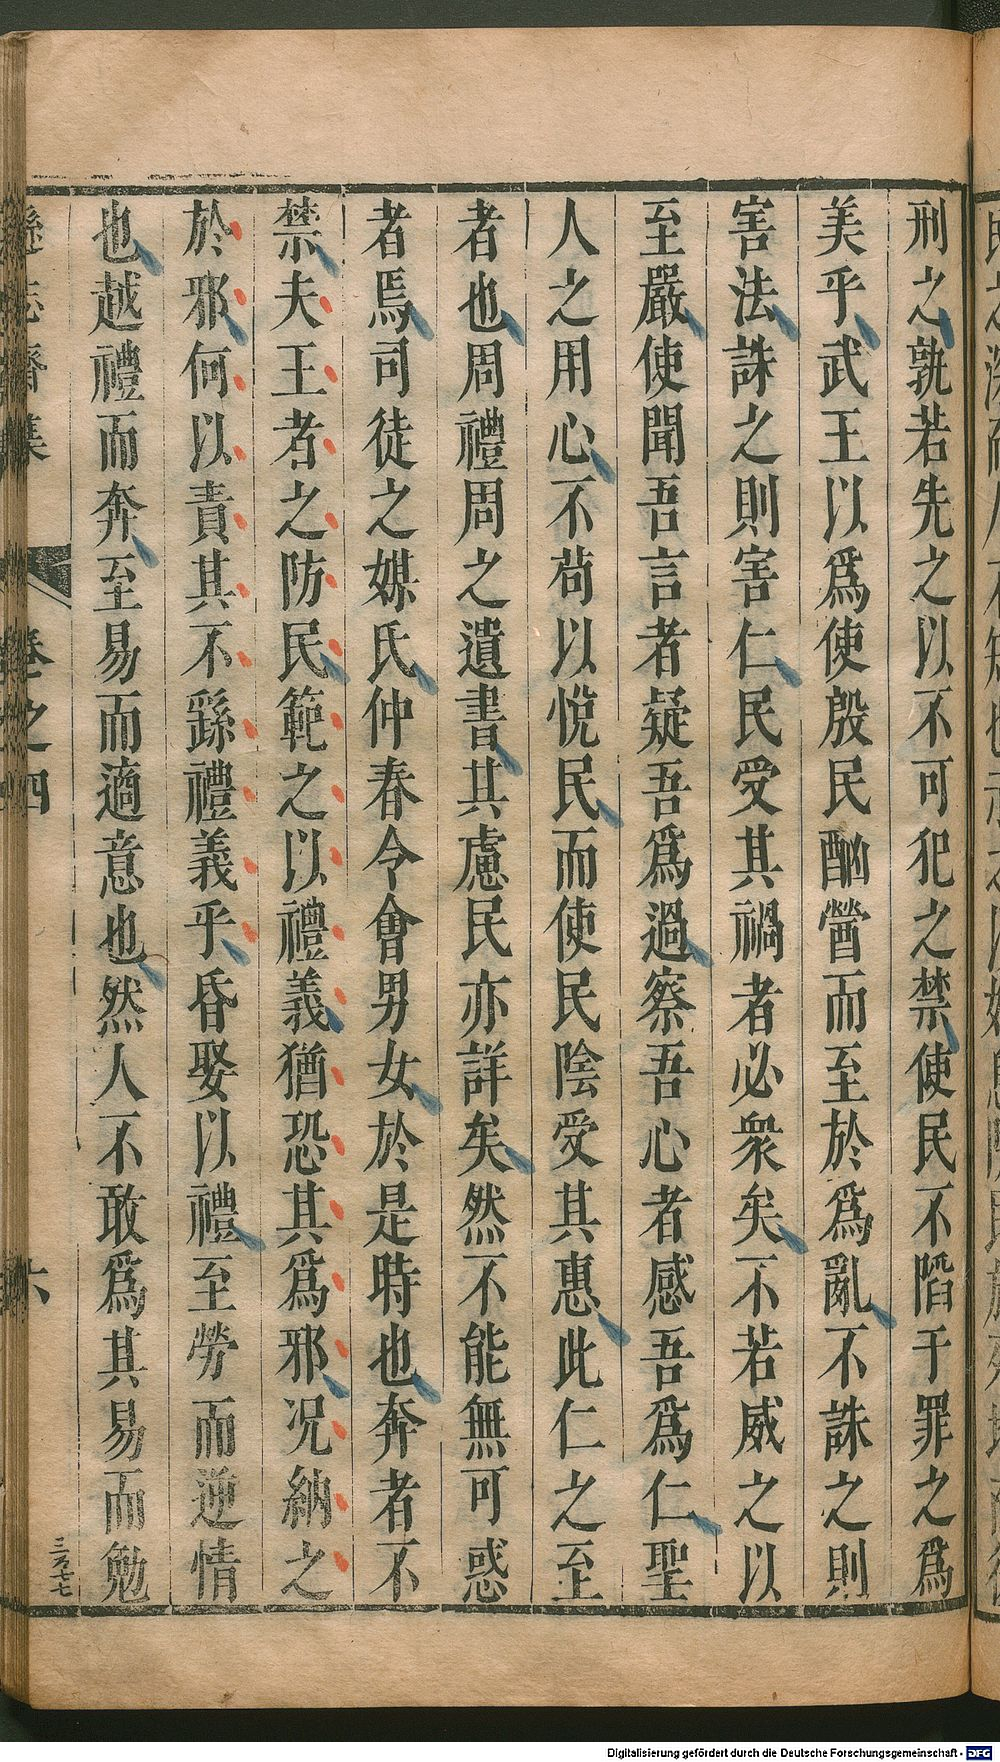 刑之孰若先之以不可犯之禁使民不陷于罪之爲
美乎武王以爲使殷民酗醟而至於爲亂不誅之則
害法誅之則害仁民受其禍者必衆矣不若威之以
至嚴使聞吾言者疑吾爲過察吾心者感吾爲仁聖
人之用心不苟以悅民而使民陰受其惠此仁之至
者也周禮周之遺書其慮民亦詳矣然不能無可惑
者焉司徒之媒氏仲春令會男女於是時也奔者不
禁夫王者之防民範之以禮義猶恐其爲邪况納之
於邪何以責其不繇禮義乎昏娶以禮至勞而逆情
也越禮而奔至易而適意也然人不敢爲其易而勉
遜志齋集
卷之四
六
Digitalisierung gefördert durch die Deutsche Forschungsgemeinschaft - DFG